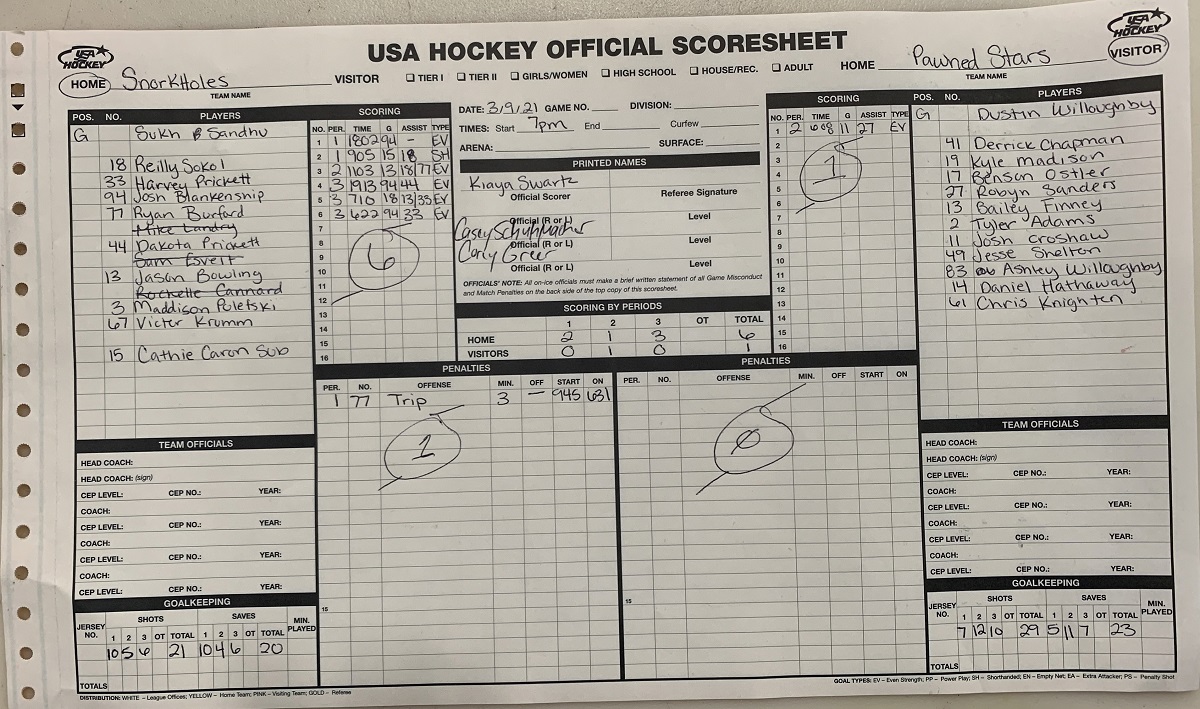 USA HOCKEY
USA HOCKEY
USA HOCKEY OFFICIAL SCORESHEET
HOME SnorkHoles VISITOR
TEAM NAME
☐ TIER I ☐ TIER II ☐ GIRLS/WOMEN ☐ HIGH SCHOOL ☐ HOUSE/REC. ☐ ADULT
HOME Pawned Stars VISITOR
TEAM NAME
POS. NO. PLAYERS
G Sukh Sandhu
18 Reilly Sokol
33 Harvey Prickett
94 Josh Blankenship
77 Ryan Burford
Mike Landry
44 Dakota Prickett
Sam Esveit
13 Jason Bowling
Rockelle Cannard
3 Maddison Poletski
67 Victor Krumm
15 Cathie Caron Sub
SCORING
NO. PER. TIME G ASSIST TYPE
1 1 1802 94 - EV
2 1 905 15 18 SH
3 2 1103 13 18/77 EV
4 3 1913 94 44 EV
5 3 710 18 13/33 EV
6 3 622 94 33 EV
7
8
9
10
11
12
13
14
15
16
6
DATE: 3/9/21 GAME NO. DIVISION:
TIMES: Start 7pm End Curfew
ARENA: SURFACE:
PRINTED NAMES
Kiaya Swartz
Official Scorer Referee Signature
Casey Schuhmacher
Official (R or L) Level
Carly Greer
Official (R or L) Level
Official (R or L) Level
OFFICIALS' NOTE: All on-ice officials must make a brief written statement of all Game Misconduct
and Match Penalties on the back side of the top copy of this scoresheet.
SCORING BY PERIODS
1 2 3 OT TOTAL
HOME 2 1 3 6
VISITORS 0 1 0 1
SCORING
NO. PER. TIME G ASSIST TYPE
1 2 608 11 27 EV
2
3
4
5
6
7
8
9
10
11
12
13
14
15
16
1
POS. NO. PLAYERS
G Dustin Willoughby
41 Derrick Chapman
19 Kyle Madison
17 Benson Ostler
27 Robyn Sanders
13 Bailey Finney
2 Tyler Adams
11 Josh Croshaw
49 Jesse Shelton
83 Ashley Willoughby
14 Daniel Hathaway
61 Chris Knighten
PENALTIES
PER. NO. OFFENSE MIN. OFF START ON
1 77 Trip 3 — 945 631
1
15
PENALTIES
PER. NO. OFFENSE MIN. OFF START ON
0
15
TEAM OFFICIALS
HEAD COACH:
HEAD COACH: (sign)
CEP LEVEL: CEP NO.: YEAR:
COACH:
CEP LEVEL: CEP NO.: YEAR:
COACH:
CEP LEVEL: CEP NO.: YEAR:
COACH:
CEP LEVEL: CEP NO.: YEAR:
GOALKEEPING
JERSEY NO. SHOTS SAVES MIN. PLAYED
1 2 3 OT TOTAL 1 2 3 OT TOTAL
10 5 6 21 10 4 6 20
TOTALS
TEAM OFFICIALS
HEAD COACH:
HEAD COACH: (sign)
CEP LEVEL: CEP NO.: YEAR:
COACH:
CEP LEVEL: CEP NO.: YEAR:
COACH:
CEP LEVEL: CEP NO.: YEAR:
COACH:
CEP LEVEL: CEP NO.: YEAR:
GOALKEEPING
JERSEY NO. SHOTS SAVES MIN. PLAYED
1 2 3 OT TOTAL 1 2 3 OT TOTAL
7 12 10 29 5 11 7 23
TOTALS
DISTRIBUTION: WHITE – League Offices; YELLOW – Home Team; PINK – Visiting Team; GOLD – Referee
GOAL TYPES: EV – Even Strength; PP – Power Play; SH – Shorthanded; EN – Empty Net; EA – Extra Attacker; PS – Penalty Shot